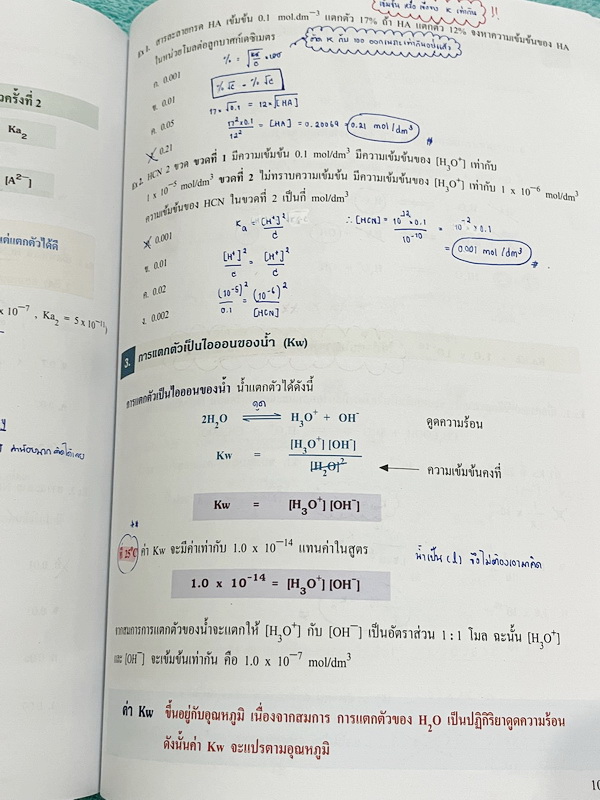 เข้มข้น หรือ
K เท่ากัน !!
Ex 1. สารละลายกรด HA เข้มข้น 0.1 mol.dm⁻³ แตกตัว 17% ถ้า HA แตกตัว 12% จงหาความเข้มข้นของ HA
ในหน่วยโมลต่อลูกบาศก์เดซิเมตร
% = √(Ka/C) × 100
ตัด K กับ 100 ออกเพราะเท่ากันอยู่แล้ว
ก. 0.001
%√C = %√C
ข. 0.01
17 × √0.1 = 12 × √[HA]
ค. 0.05
17² × 0.1 / 12² = [HA] = 0.20069 ≈ 0.21 mol/dm³
0.21
Ex 2. HCN 2 ขวด ขวดที่ 1 มีความเข้มข้น 0.1 mol/dm³ มีความเข้มข้นของ [H₃O⁺] เท่ากับ
1 x 10⁻⁵ mol/dm³ ขวดที่ 2 ไม่ทราบความเข้มข้น มีความเข้มข้นของ [H₃O⁺] เท่ากับ 1 x 10⁻⁶ mol/dm³
ความเข้มข้นของ HCN ในขวดที่ 2 เป็นกี่ mol/dm³
0.001
Ka = [H⁺]² / C
∴ [HCN] = 10⁻¹² × 0.1 / 10⁻¹⁰ = 10⁻² × 0.1
ข. 0.01
[H⁺]² / C = [H⁺]² / C
= 0.001 mol/dm³
ค. 0.02
ง. 0.002
(10⁻⁵)² / 0.1 = (10⁻⁶)² / [HCN]
3. การแตกตัวเป็นไอออนของน้ำ (Kw)
การแตกตัวเป็นไอออนของน้ำ น้ำแตกตัวได้ดังนี้
ดูด
2H₂O ⇌ H₃O⁺ + OH⁻ ดูดความร้อน
Kw = [H₃O⁺] [OH⁻] / [H₂O]² ← ความเข้มข้นคงที่
Kw = [H₃O⁺] [OH⁻]
ที่ 25°C ค่า Kw จะมีค่าเท่ากับ 1.0 x 10⁻¹⁴ แทนค่าในสูตร
น้ำเป็น (l) จึงไม่ต้องเอามาคิด
1.0 x 10⁻¹⁴ = [H₃O⁺] [OH⁻]
จากสมการการแตกตัวของน้ำจะแตกให้ [H₃O⁺] กับ [OH⁻] เป็นอัตราส่วน 1 : 1 โมล ฉะนั้น [H₃O⁺]
และ [OH⁻] จะเข้มข้นเท่ากัน คือ 1.0 x 10⁻⁷ mol/dm³
ค่า Kw ขึ้นอยู่กับอุณหภูมิ เนื่องจากสมการ การแตกตัวของ H₂O เป็นปฏิกิริยาดูดความร้อน
ดังนั้นค่า Kw จะแปรตามอุณหภูมิ
ครั้งที่ 2
Ka₂
[A²⁻]
แต่แตกตัวได้ดี
x 10⁻⁷ , Ka₂ = 5 x 10⁻¹³)